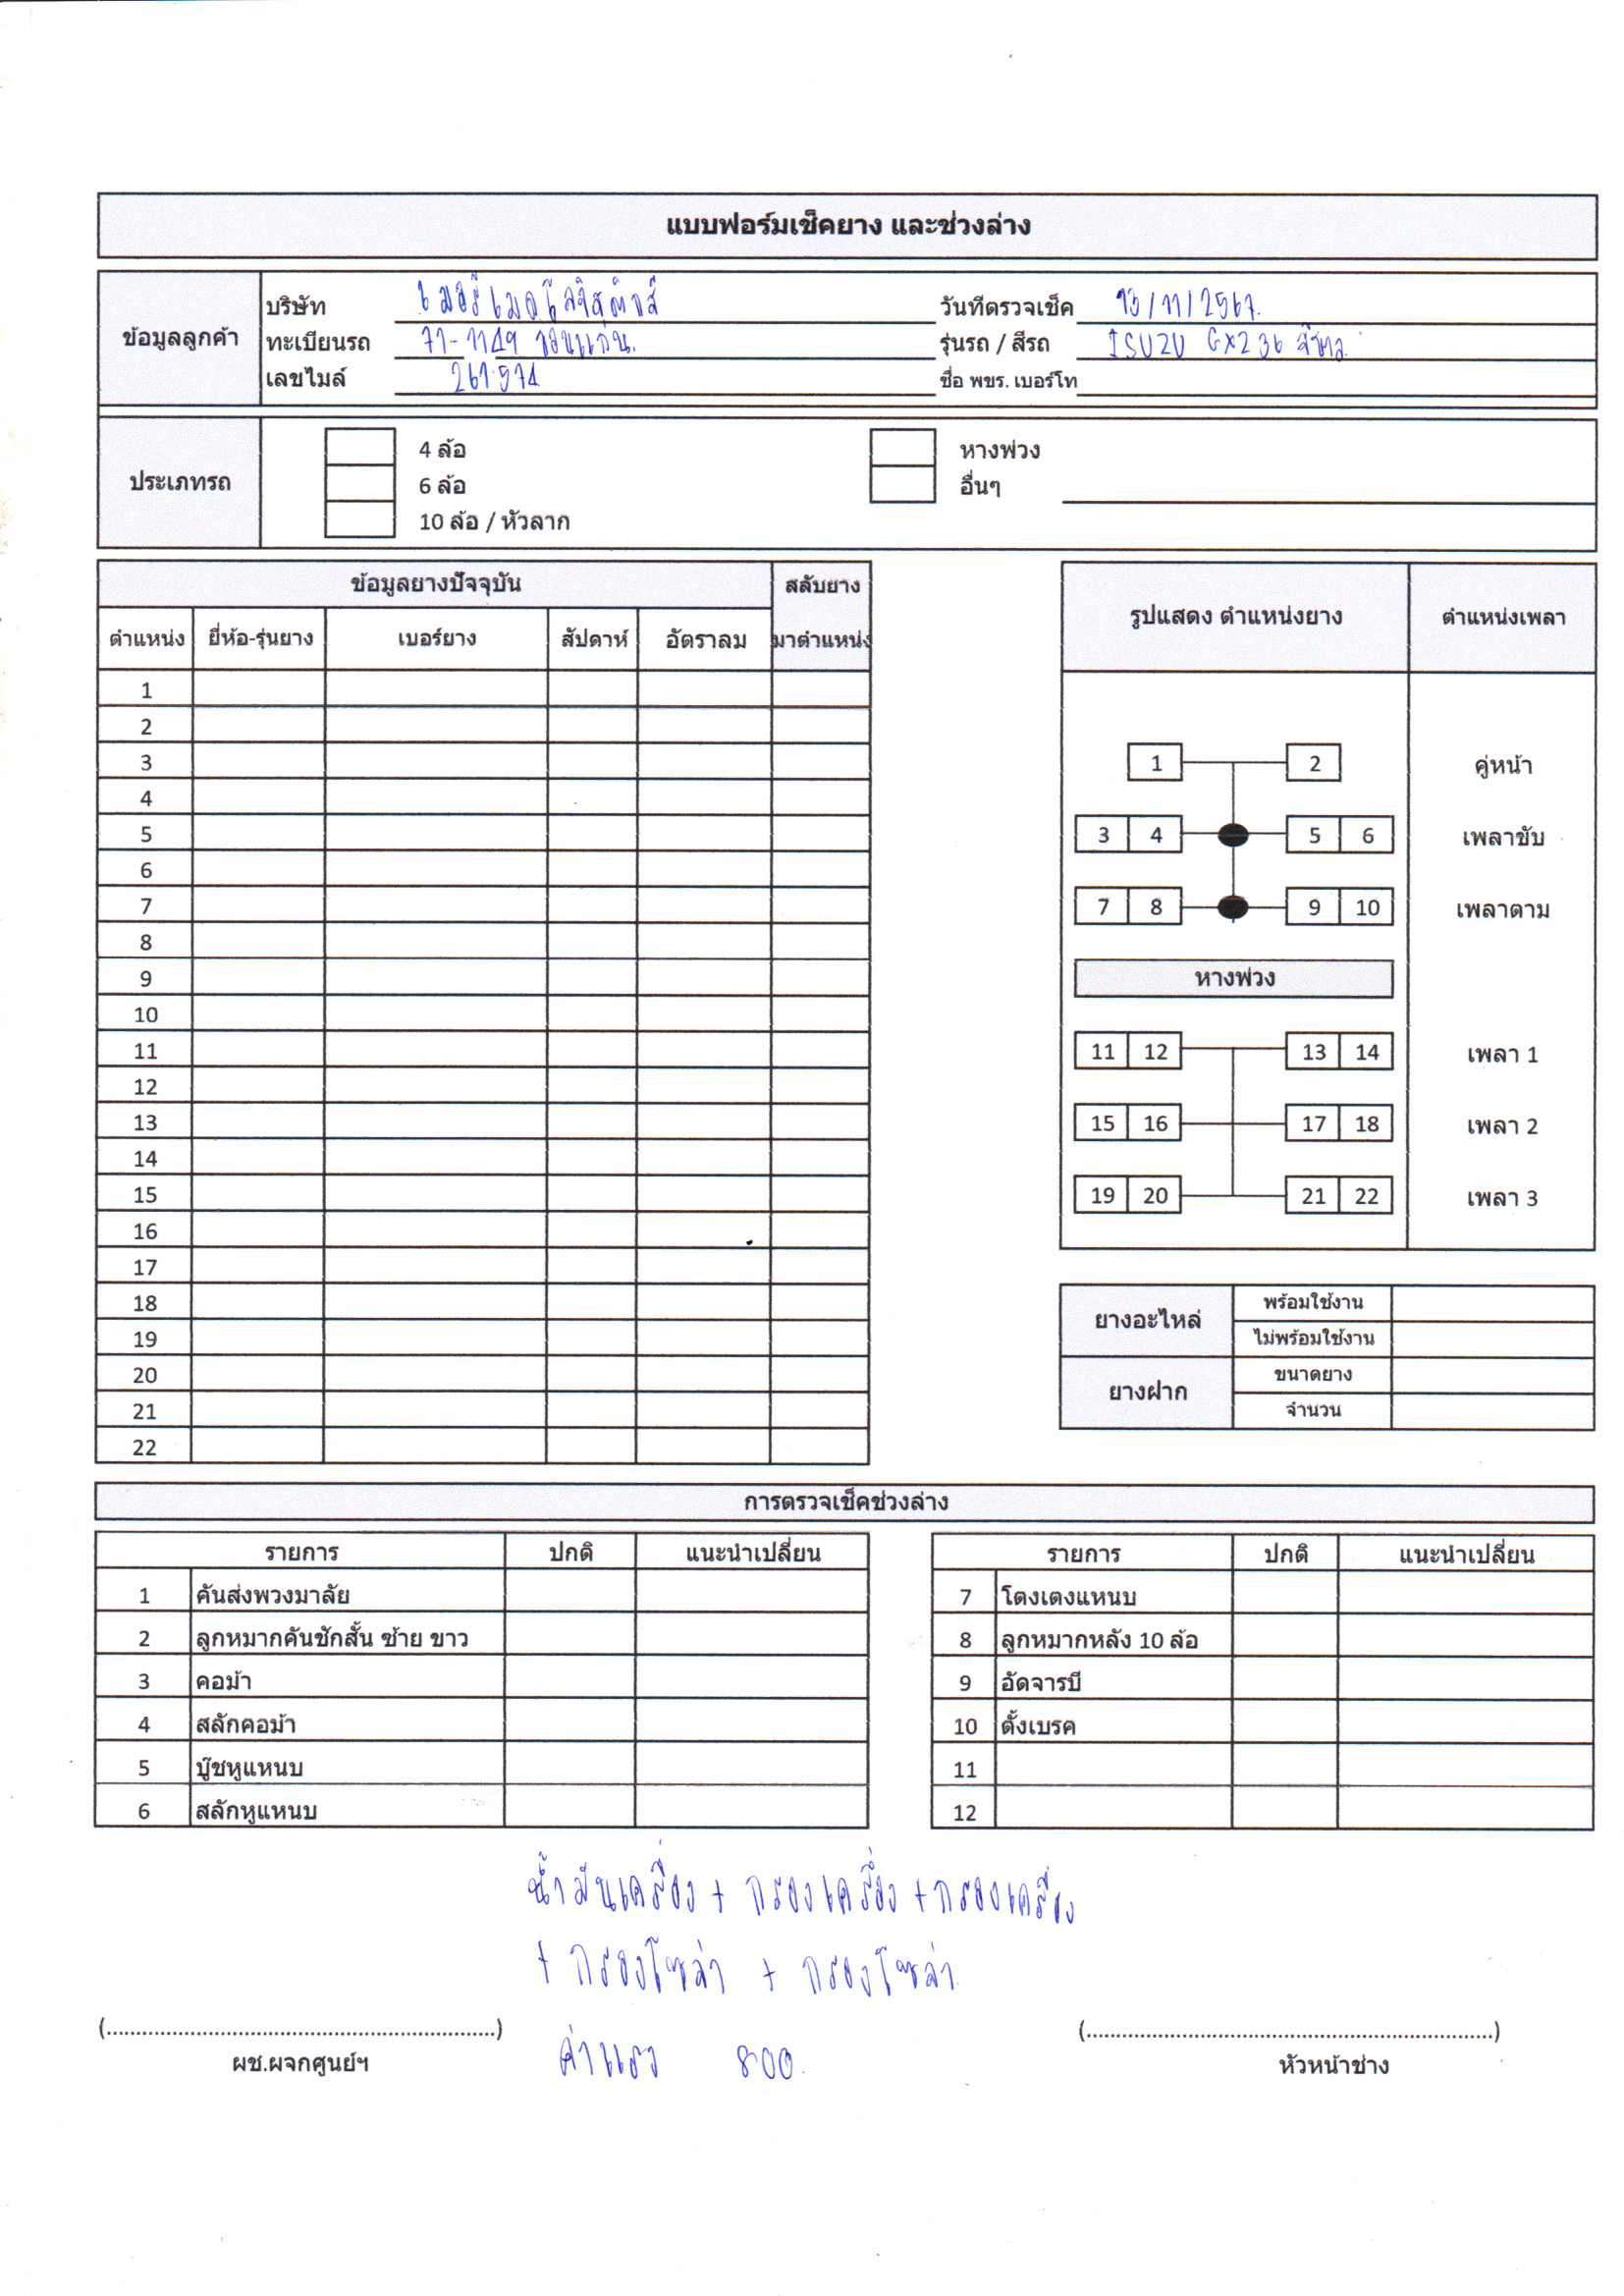 แบบฟอร์มเช็คยาง และช่วงล่าง
ข้อมูลลูกค้า
บริษัท เมอร์เมดโลจิสติกส์ วันที่ตรวจเช็ค 13/11/2567
ทะเบียนรถ 71-1149 ขอนแก่น รุ่นรถ / สีรถ ISUZU GXZ 36
เลขไมล์ 267.974 ชื่อ พขร. เบอร์โท
ประเภทรถ
4 ล้อ หางพ่วง
6 ล้อ อื่นๆ
10 ล้อ / หัวลาก
ข้อมูลยางปัจจุบัน สลับยาง
ตำแหน่ง ยี่ห้อ-รุ่นยาง เบอร์ยาง สัปดาห์ อัตราลม มาตำแหน่ง
1
2
3
4
5
6
7
8
9
10
11
12
13
14
15
16
17
18
19
20
21
22
รูปแสดง ตำแหน่งยาง ตำแหน่งเพลา
1 2 คู่หน้า
3 4 5 6 เพลาขับ
7 8 9 10 เพลาตาม
หางพ่วง
11 12 13 14 เพลา 1
15 16 17 18 เพลา 2
19 20 21 22 เพลา 3
ยางอะไหล่ พร้อมใช้งาน
ไม่พร้อมใช้งาน
ยางฝาก ขนาดยาง
จำนวน
การตรวจเช็คช่วงล่าง
รายการ ปกติ แนะนำเปลี่ยน
1 คันส่งพวงมาลัย
2 ลูกหมากคันชักสั้น ซ้าย ขาว
3 คอม้า
4 สลักคอม้า
5 บู๊ชหูแหนบ
6 สลักหูแหนบ
รายการ ปกติ แนะนำเปลี่ยน
7 โตงเตงแหนบ
8 ลูกหมากหลัง 10 ล้อ
9 อัดจารบี
10 ตั้งเบรค
11
12
น้ำมันเครื่อง + กรองเครื่อง + กรองเครื่อง
+ กรองโซล่า + กรองโซล่า
ค่าแรง 800.
(....................................................................)
ผช.ผจกศูนย์ฯ
(....................................................................)
หัวหน้าช่าง